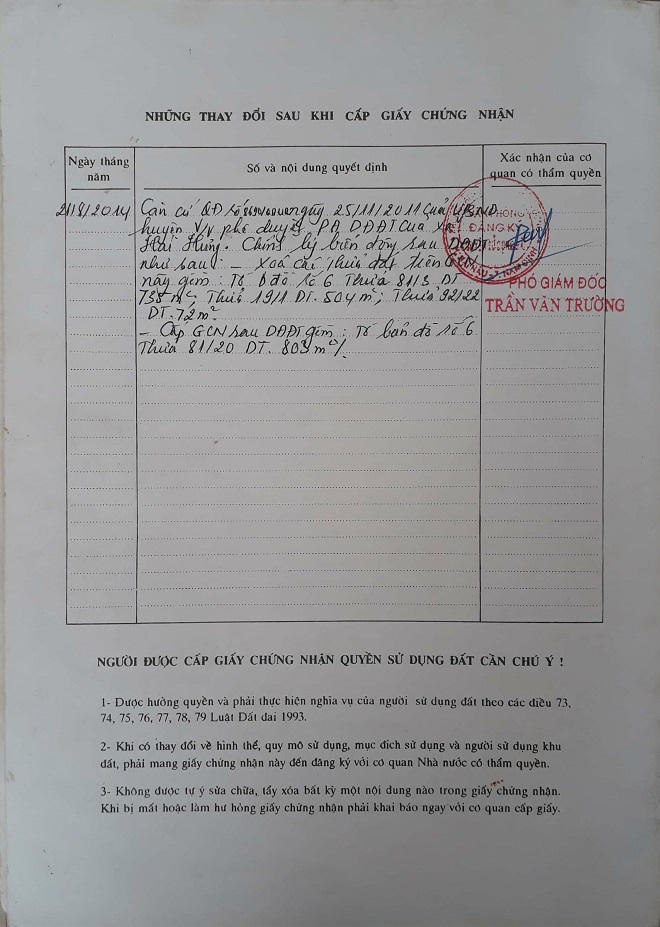 NHỮNG THAY ĐỔI SAU KHI CẤP GIẤY CHỨNG NHẬN
Ngày tháng năm
Số và nội dung quyết định
Xác nhận của cơ quan có thẩm quyền
21/8/2014
Căn cứ QĐ số ngày 25/11/2011 của UBND
huyện V/v phê duyệt PA DĐĐT của xã
Hải Hưng. Chỉnh lý biến động sau DĐĐT
như sau: - Xoá các thửa đất trên GCN
này gồm: Tờ b đồ số 6 Thửa 81/3 DT
738 m² Thửa 19/1 DT. 504 m²; Thửa 92/22
DT. 72 m²
- Cấp GCN sau DĐĐT gồm: Tờ bản đồ số 6
Thửa 81/20 DT. 803 m²/.
ĐĂNG KÝ
PHÓ GIÁM ĐỐC
TRẦN VĂN TRƯỜNG
NGƯỜI ĐƯỢC CẤP GIẤY CHỨNG NHẬN QUYỀN SỬ DỤNG ĐẤT CẦN CHÚ Ý !
1- Được hưởng quyền và phải thực hiện nghĩa vụ của người sử dụng đất theo các điều 73,
74, 75, 76, 77, 78, 79 Luật Đất đai 1993.
2- Khi có thay đổi về hình thể, quy mô sử dụng, mục đích sử dụng và người sử dụng khu
đất, phải mang giấy chứng nhận này đến đăng ký với cơ quan Nhà nước có thẩm quyền.
3- Không được tự ý sửa chữa, tẩy xóa bất kỳ một nội dung nào trong giấy chứng nhận.
Khi bị mất hoặc làm hư hỏng giấy chứng nhận phải khai báo ngay với cơ quan cấp giấy.